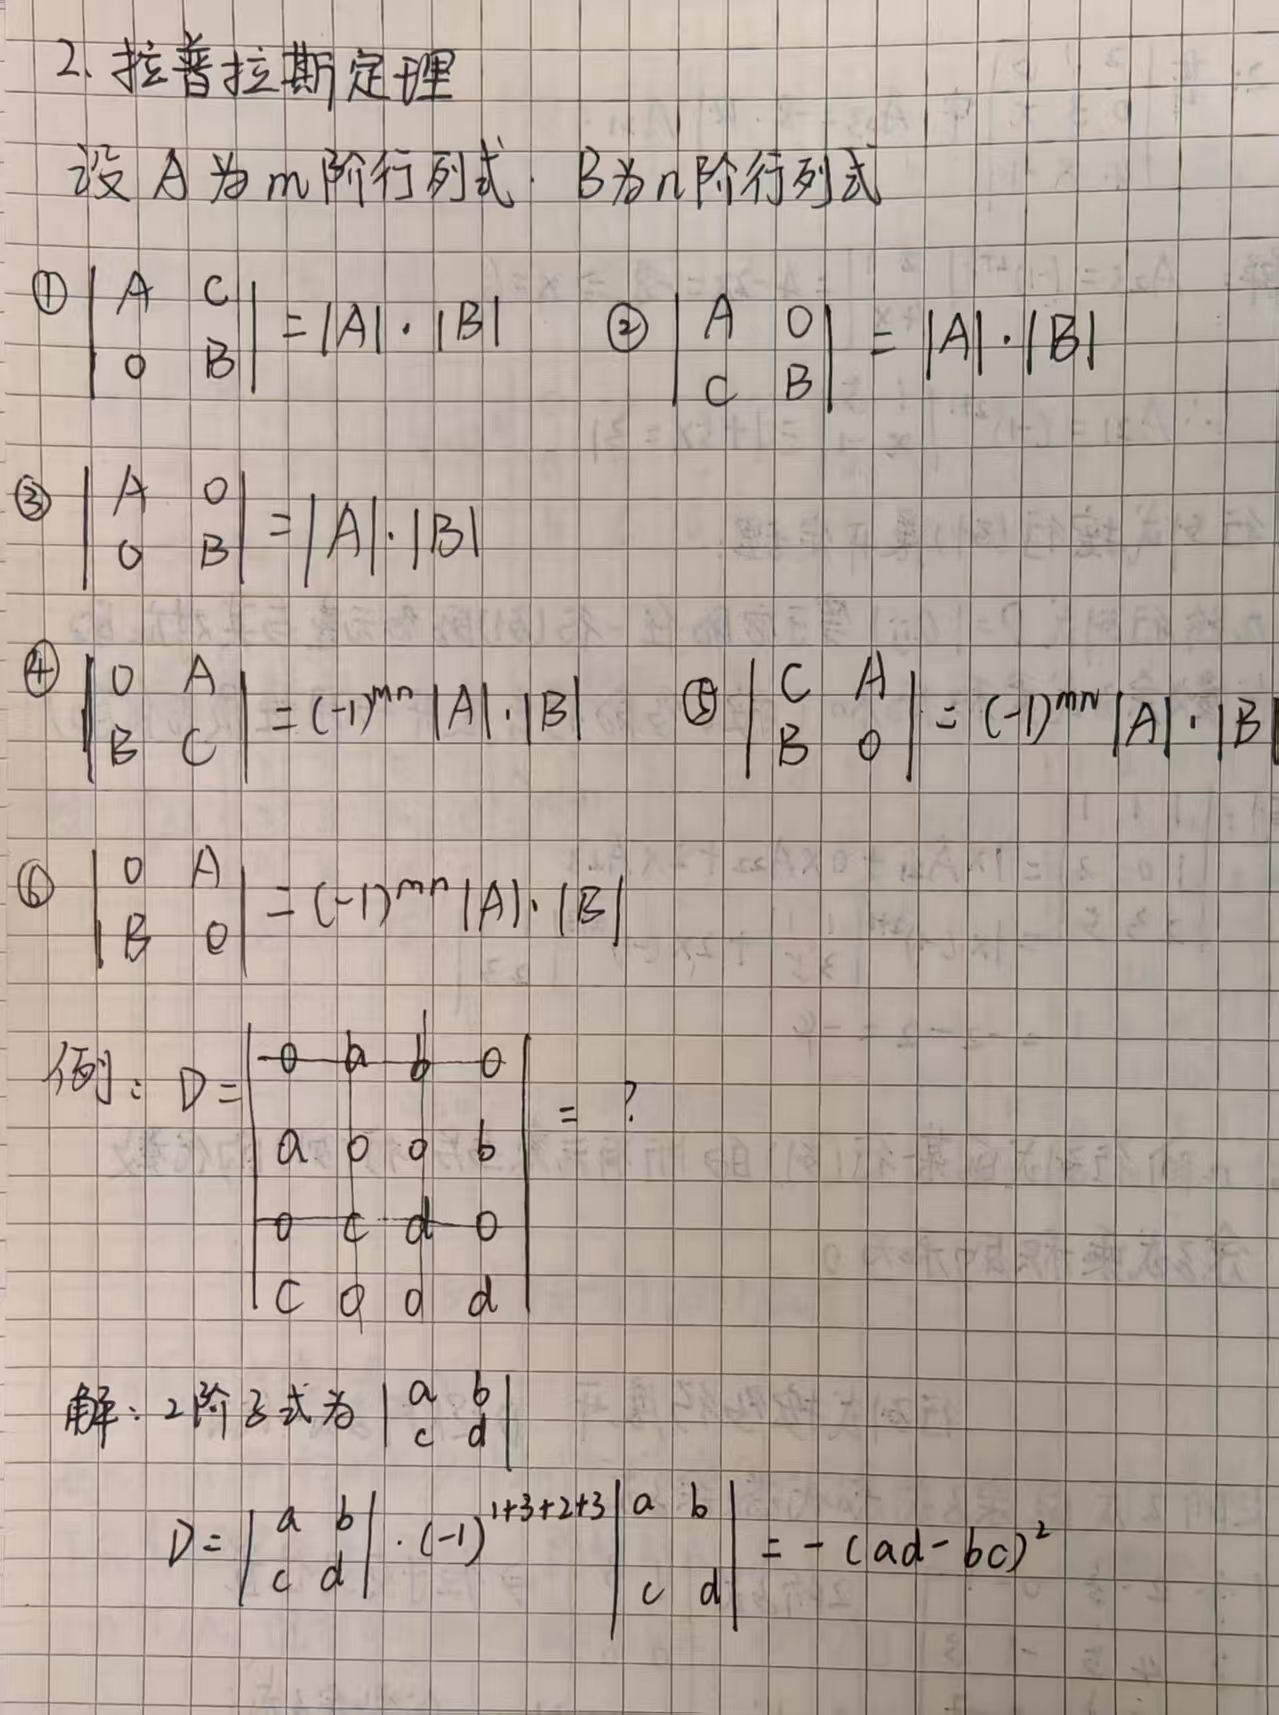 2、拉普拉斯定理
设 A 为 m 阶行列式. B为n阶行列式
① | A C ; 0 B | = |A|·|B| ② | A 0 ; C B | = |A|·|B|
③ | A 0 ; 0 B | = |A|·|B|
④ | 0 A ; B C | = (-1)^mn |A|·|B| ⑤ | C A ; B 0 | = (-1)^mn |A|·|B|
⑥ | 0 A ; B 0 | = (-1)^mn |A|·|B|
例: D = | 0 a b 0 ; a 0 0 b ; 0 c d 0 ; c 0 0 d | = ?
解: 2阶子式为 | a b ; c d |
D = | a b ; c d | · (-1)^1+3+2+3 | a b ; c d | = - (ad - bc)^2